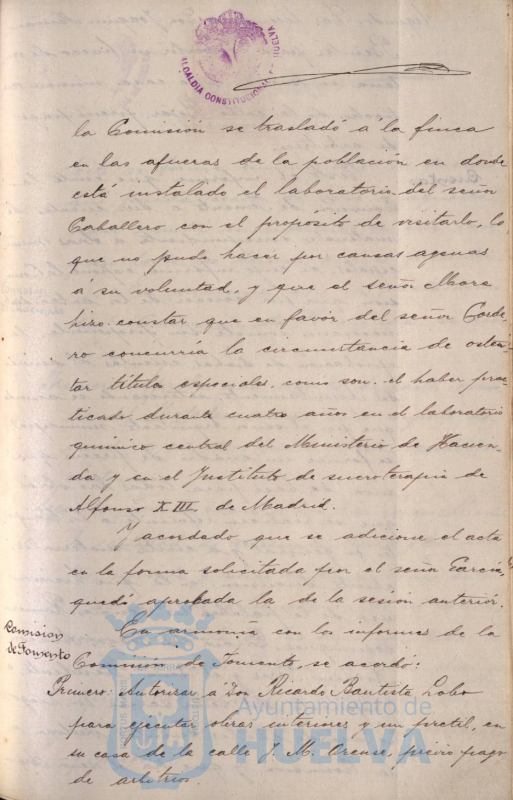 ALCALDIA CONSTITUCIONAL HUELVA
la Comisión se trasladó á la finca
en las afueras de la población en donde
está instalado el laboratorio del señor
Caballero con el propósito de visitarlo, lo
que no pudo hacer por causas agenas
á su voluntad, y que el señor Mora
hizo constar que en favor del señor Corde-
ro concurría la circunstancia de osten-
tar títulos especiales, como son el haber prac-
ticado durante cuatro años en el laboratorio
químico central del Ministerio de Hacien-
da y en el Instituto de sueroterapia de
Alfonso XIII de Madrid.
Y acordado que se adicione el acta
en la forma solicitada por el señor García,
quedó aprobada la de la sesión anterior.
Comisión
de Fomento
En armonía con los informes de la
Comisión de Fomento, se acordó:
Primero: Autorizar a Don Ricardo Bautista Lobo
para ejecutar obras interiores y un pretil, en
su casa de la calle J. M. Orense, previo pago
de arbitrios.
Ayuntamiento de
HUELVA